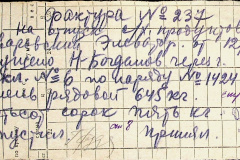 Фактура № 237
на отпуск с/х продуктов
Элеватор. от 12
Н. Богданов через г.
кл. № 6 по наряду № 1424
рядовой 645 кг.
сорок пять кг
пустил Принял.